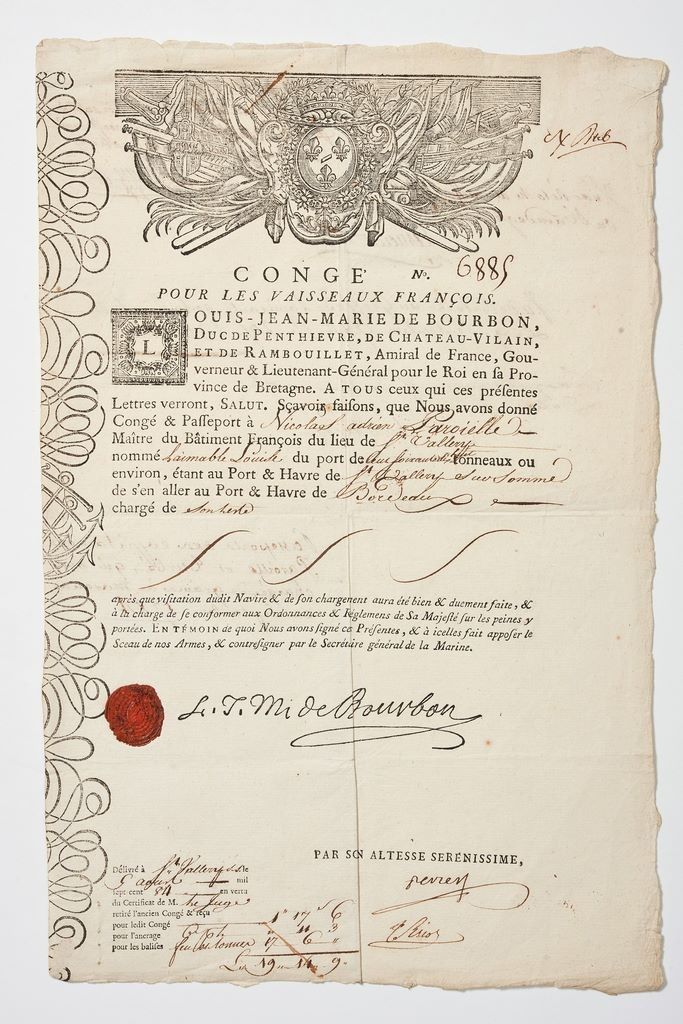 CONGÉ N.º 6885
POUR LES VAISSEAUX FRANÇOIS.
LOUIS-JEAN-MARIE DE BOURBON,
DUC DE PENTHIEVRE, DE CHATEAU-VILAIN,
ET DE RAMBOUILLET, Amiral de France, Gou-
verneur & Lieutenant-Général pour le Roi en sa Pro-
vince de Bretagne. A TOUS ceux qui ces présentes
Lettres verront, SALUT. Sçavoir faisons, que Nous avons donné
Congé & Passeport à Nicolas adrien
Maître du Bâtiment François du lieu de St Vallery
nommé Laimable Louise du port de tonneaux ou
environ, étant au Port & Havre de St Vallery sur Somme
de s'en aller au Port & Havre de Bordeaux
chargé de son leste
après que visitation dudit Navire & de son chargement aura été bien & duement faite, &
à la charge de se conformer aux Ordonnances & Réglemens de Sa Majesté sur les peines y
portées. EN TÉMOIN de quoi Nous avons signé ces Présentes, & à icelles fait apposer le
Sceau de nos Armes, & contresigner par le Secrétaire général de la Marine.
L. J. M. de Bourbon
PAR SON ALTESSE SERENISSIME,
Délivré à St Vallery le
mil
sept cent 84 en vertu
du Certificat de M.
retiré l'ancien Congé & reçu
pour ledit Congé 1 17 6
pour l'ancrage 11 3
pour les balises 17 6
19 14 9